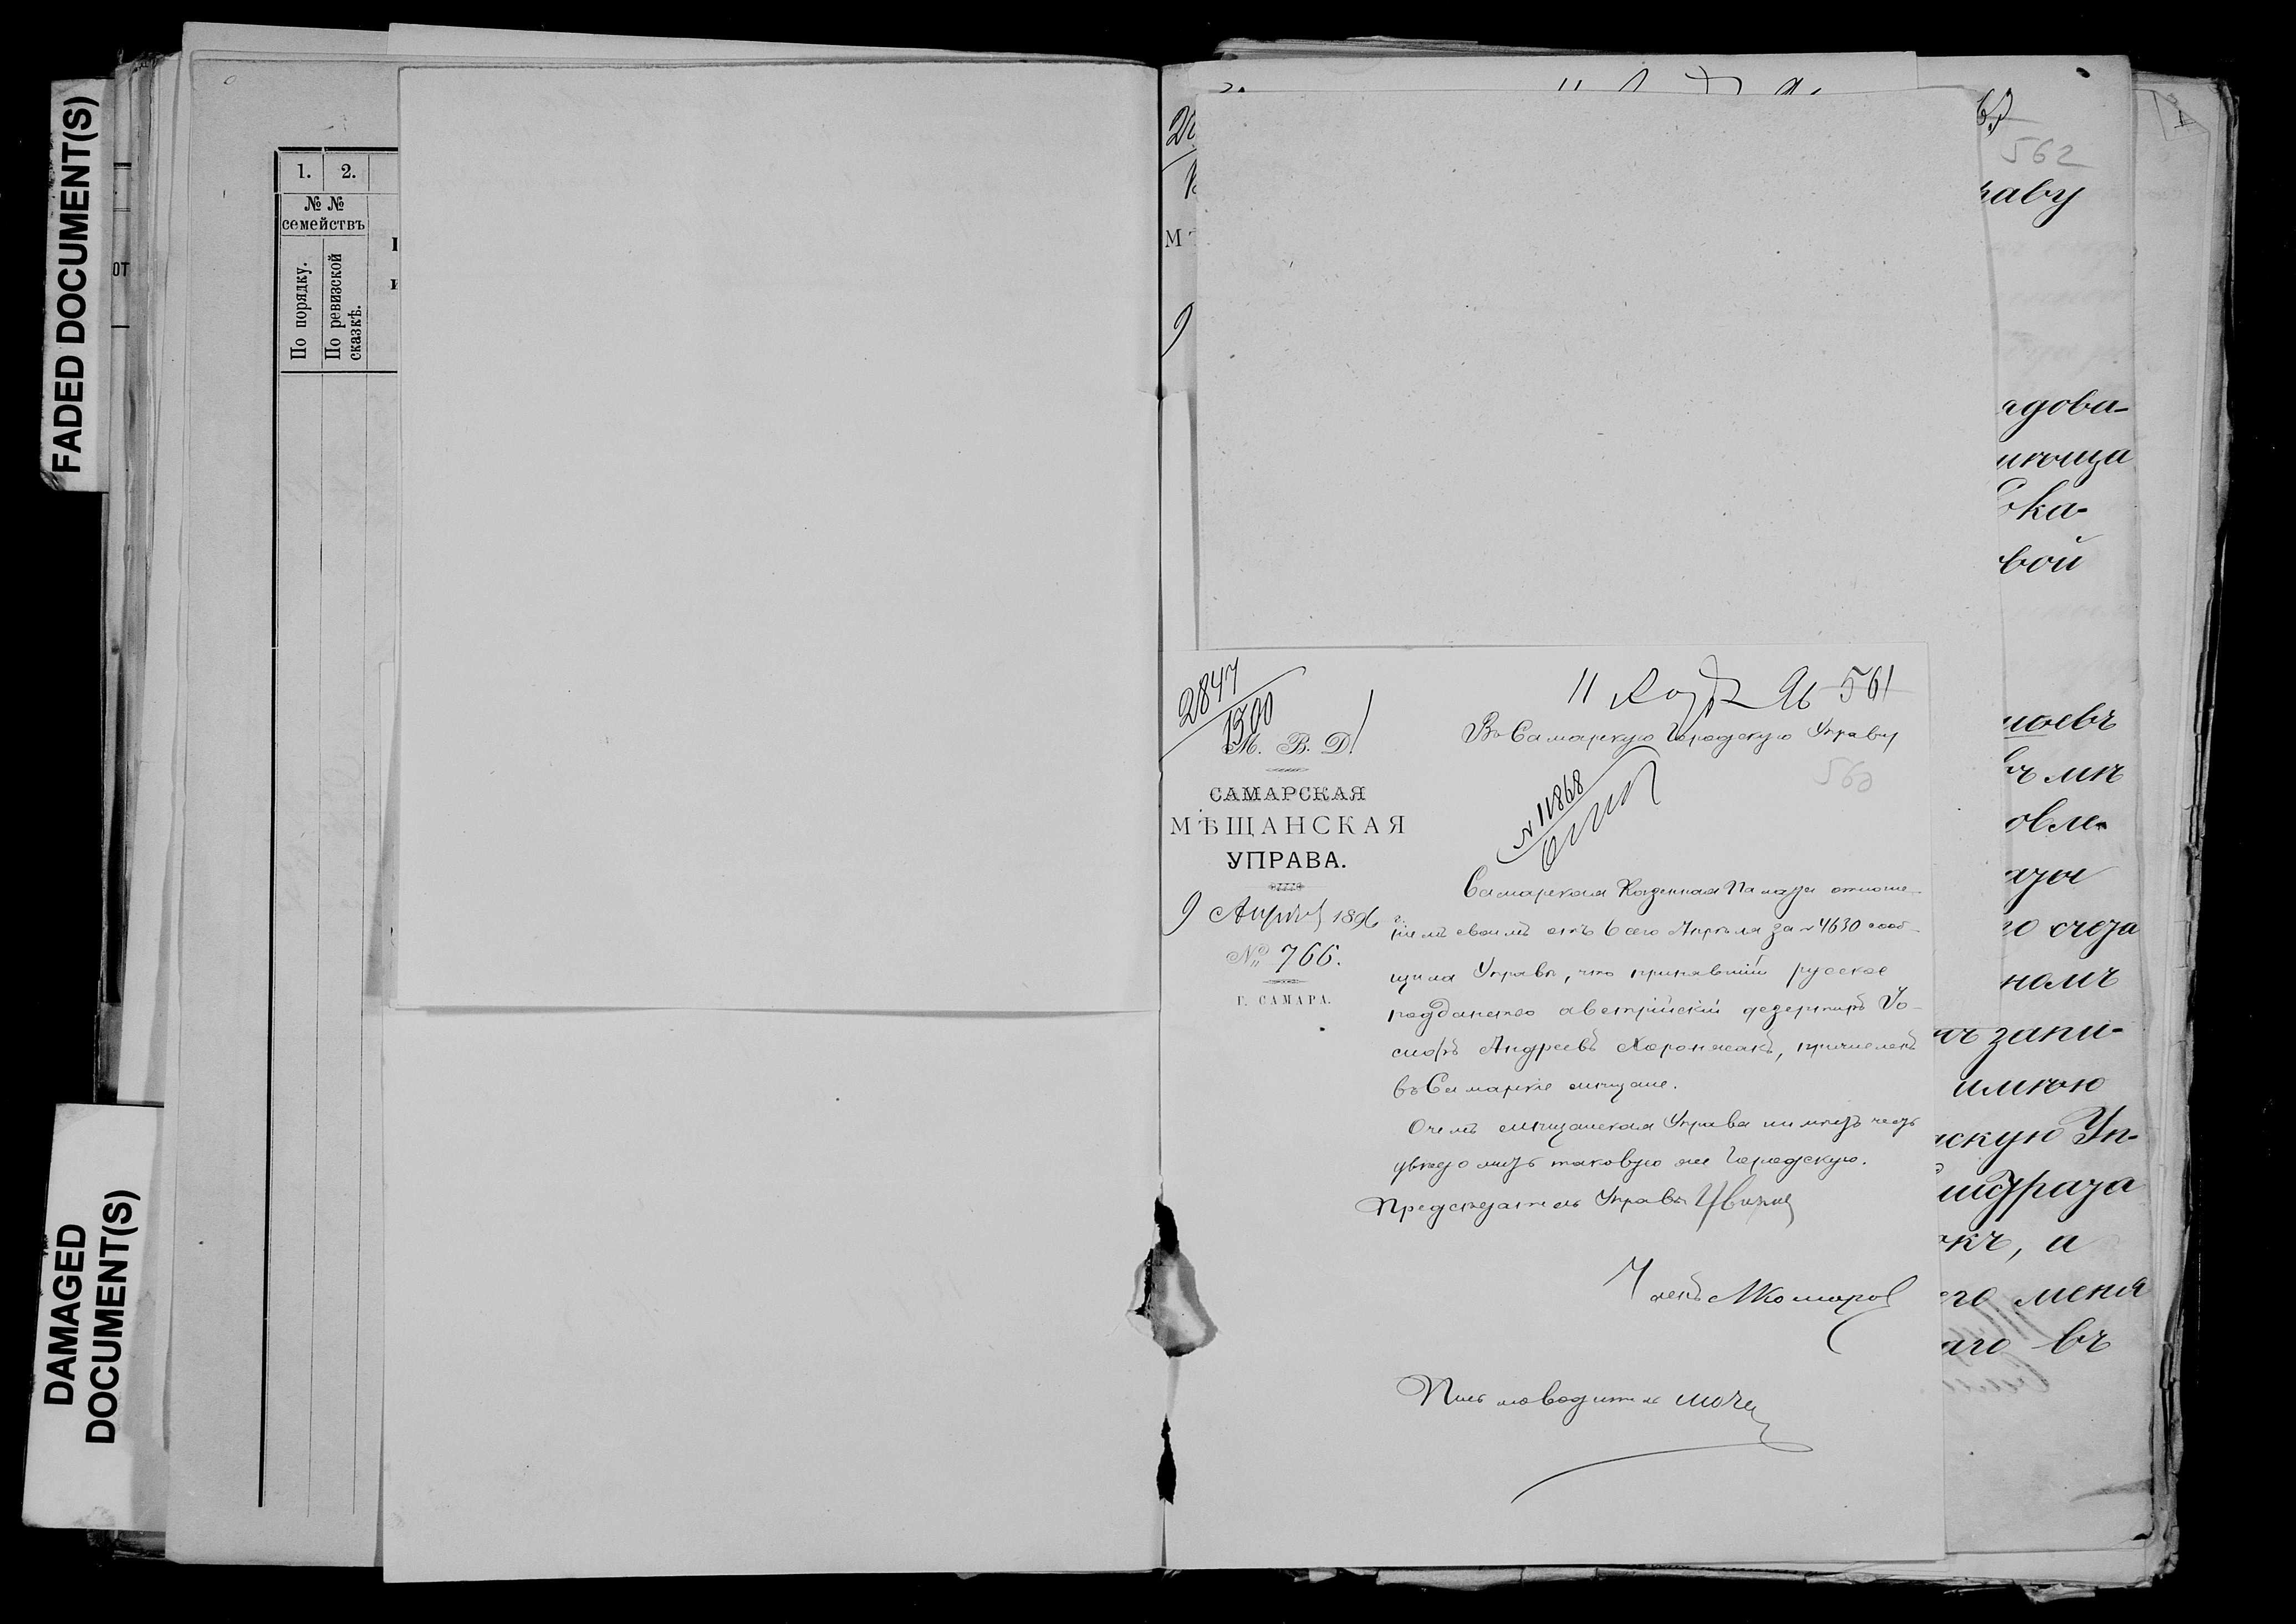 FADED DOCUMENT(S)
DAMAGED
DOCUMENT(S)
1. 2.
№ №
семействъ
По порядку.
По ревизской
сказкѣ.
562
раву
2847
1300
М. В. Д.
САМАРСКАЯ
МѢЩАНСКАЯ
УПРАВА.
9 Апрѣля 1896 г.
№ 766.
Г. САМАРА.
11 96 561
Въ Самарскую Городскую Управу
560
№ 11868
Самарская Казенная Палата отноше-
ніемъ своимъ отъ 6 сего Апрѣля за № 4630 сооб-
щила Управѣ, что принявшій русское
подданство австрійскій дезертиръ Іо-
сифъ Андреевъ, причисленъ
въ Самарскіе мѣщане.
О чемъ мѣщанская Управа имѣетъ честь
увѣдомить таковую же Городскую.
Предсѣдатель Управы
Членъ МКомаров
Письмоводитель
едова-
вой
овле-
номъ
запи-
имѣю
скую Уп-
къ, а
его меня
аго въ